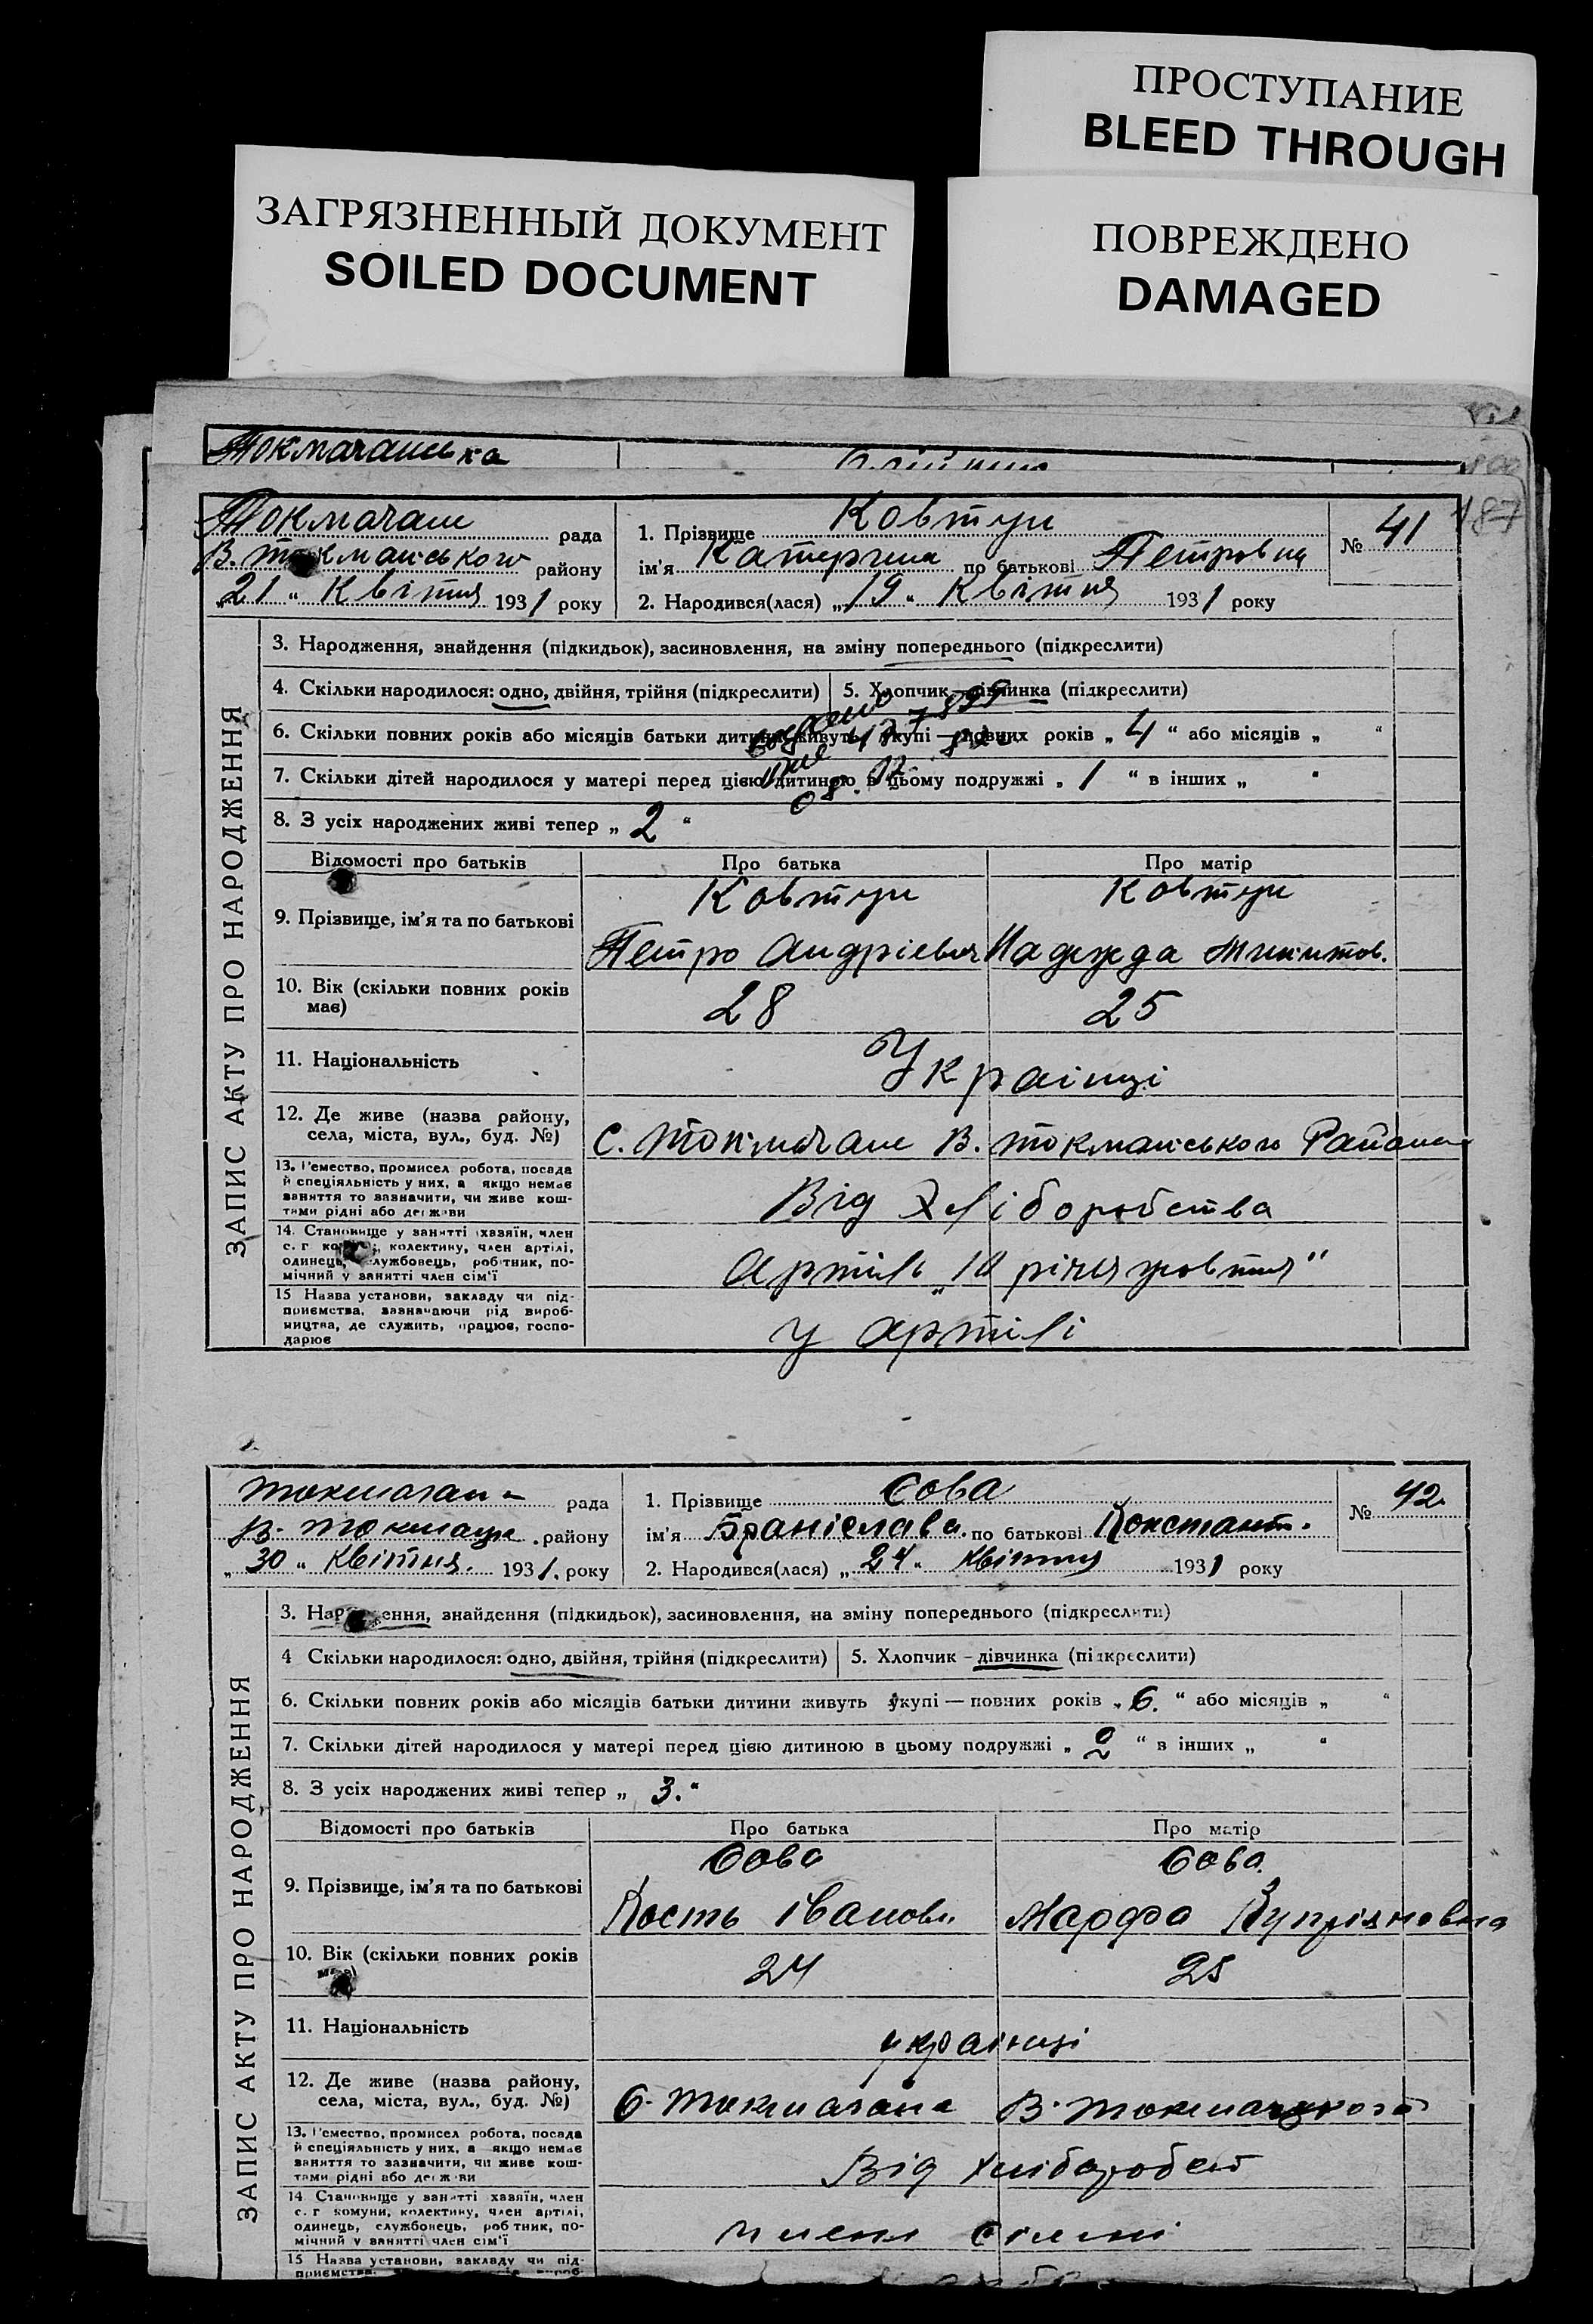 ПРОСТУПАНИЕ
BLEED THROUGH
ЗАГРЯЗНЕННЫЙ ДОКУМЕНТ
SOILED DOCUMENT
ПОВРЕЖДЕНО
DAMAGED
Токмачанська
187
Токмачан рада
В. токманського району
„21" Квітня 1931 року
1. Прізвище Ковтун
ім'я Катерина по батькові Петровна
2. Народився(лася) „19" Квітня 1931 року
№ 41
ЗАПИС АКТУ ПРО НАРОДЖЕННЯ
3. Народження, знайдення (підкидьок), засиновлення, на зміну попереднього (підкреслити)
4. Скільки народилося: одно, двійня, трійня (підкреслити) 5. Хлопчик дівчинка (підкреслити)
6. Скільки повних років або місяців батьки дитини живуть укупі — повних років „ 4 " або місяців „ "
7. Скільки дітей народилося у матері перед цією дитиною в цьому подружжі „ 1 " в інших „ "
8. З усіх народжених живі тепер „ 2 "
Відомості про батьків Про батька Про матір
9. Прізвище, ім'я та по батькові
Ковтун Ковтун
Петро Андріевич Надежда Микитов.
10. Вік (скільки повних років має) 28 25
11. Національність Українці
12. Де живе (назва району, села, міста, вул., буд. №) С. Токмачан В. токманського Района
13. Ремество, промисел робота, посада
й спеціяльність у них, а якщо немає
заняття то зазначити, чи живе кош-
тами рідні або держави
Від Хліборобства
14. Становище у занятті хазяїн, член
с. г колективу, член артілі,
одинець, службовець, робітник, по-
мічний у занятті член сім'ї
Артіль „10 річчя жовтня"
15 Назва установи, закладу чи під-
приємства, зазначаючи рід вироб-
ництва, де служить, працює, госпо-
дарює
у артілі
Токмачан рада
В. Токмацьк. району
„30" Квітня. 1931. року
1. Прізвище Сова
ім'я Браніслава. по батькові Констант.
2. Народився(лася) „24" квітня 1931 року
№ 42.
ЗАПИС АКТУ ПРО НАРОДЖЕННЯ
3. Народження, знайдення (підкидьок), засиновлення, на зміну попереднього (підкреслити)
4 Скільки народилося: одно, двійня, трійня (підкреслити) 5. Хлопчик – дівчинка (підкреслити)
6. Скільки повних років або місяців батьки дитини живуть укупі — повних років „ 6. " або місяців „ "
7. Скільки дітей народилося у матері перед цією дитиною в цьому подружжі „ 2 " в інших „ "
8. З усіх народжених живі тепер „ 3. "
Відомості про батьків Про батька Про матір
9. Прізвище, ім'я та по батькові
Сова Сова
Кость Іванов. Марфа Купріяновна
10. Вік (скільки повних років має) 24 25
11. Національність українці
12. Де живе (назва району, села, міста, вул., буд. №) С. Токмачана В. Токмацького
13. Ремество, промисел робота, посада
й спеціяльність у них, а якщо немає
заняття то зазначити, чи живе кош-
тами рідні або держави
Від хліборобст
14 Становище у занятті хазяїн, член
с. г комуни, колективу, член артілі,
одинець, службовець, робітник, по-
мічний у занятті член сім'ї
15 Назва установи, закладу чи під-
приємства,